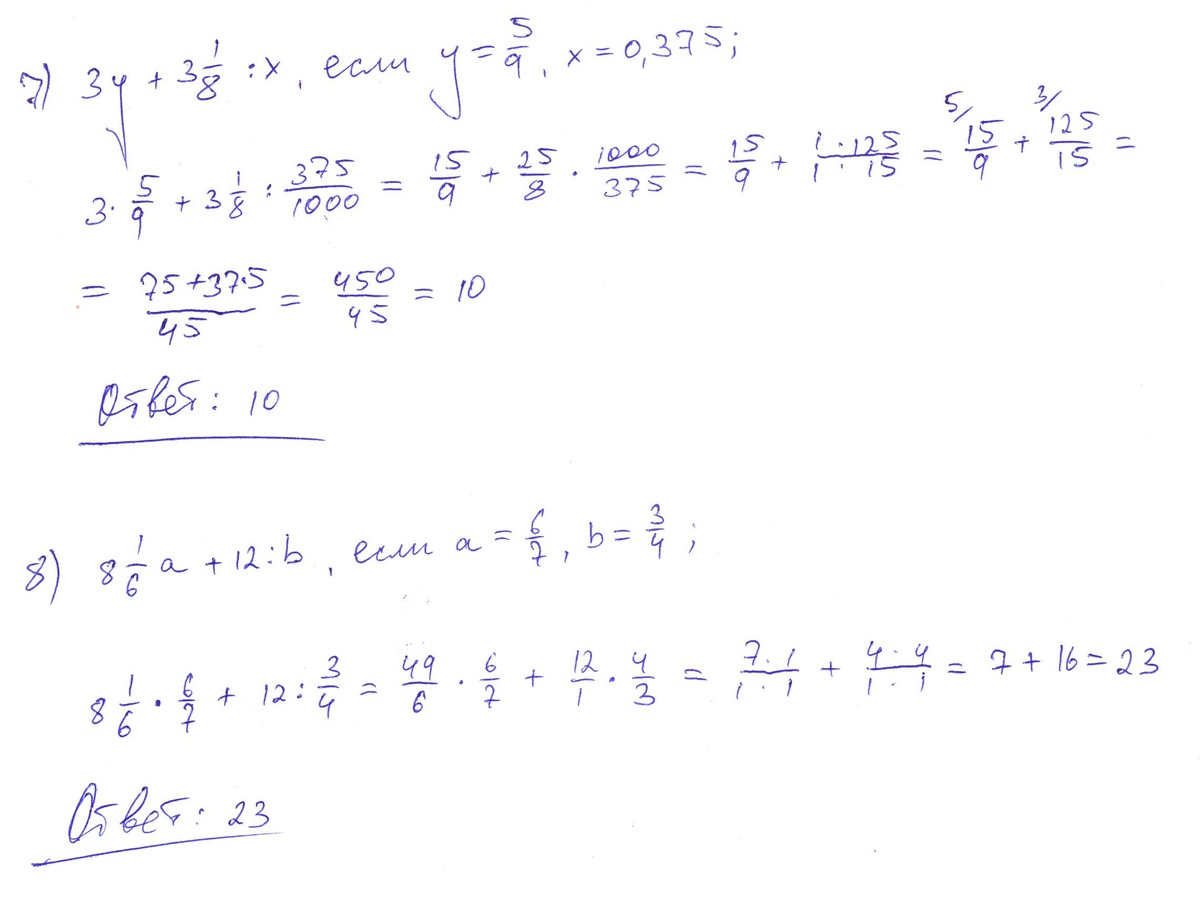 7) 3y + 3 1/8 : x, если y = 5/9, x = 0,375;
3 · 5/9 + 3 1/8 : 375/1000 = 15/9 + 25/8 · 1000/375 = 15/9 + 1·125/1·15 = 5/ 15/9 + 3/ 125/15 =
= 75+37·5/45 = 450/45 = 10
Ответ: 10
8) 8 1/6 a + 12 : b, если a = 6/7, b = 3/4;
8 1/6 · 6/7 + 12 : 3/4 = 49/6 · 6/7 + 12/1 · 4/3 = 7·1/1·1 + 4·4/1·1 = 7 + 16 = 23
Ответ: 23